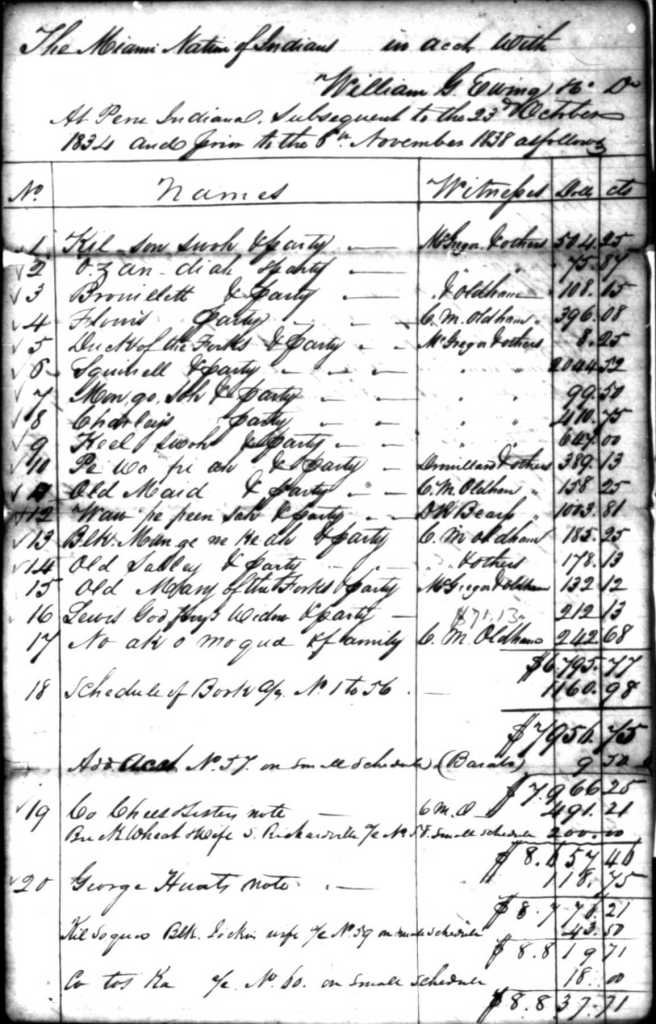 The Miami Nation of Indians in acct with
William G. Ewing & Co Dr
At Peru Indiana. Subsequent to the 23rd October
1834 and prior to the 6th November 1838 as follows
No. Names Witnesses Doll cts
1 Kil son swoh & party McGregor & others 504.25
2 O. zan diah & party " " 75.87
3 Brouillett & party " & Oldham 108.15
4 Flowers party C. M. Oldham 396.08
5 Duck of the Forks & party McGregor & others 8.25
6 Squirrell & party " " 2044.52
7 Mon, go, sah & party " " 99.50
8 Charley's party " " 410.75
9 Keel swoh & party " " 647.00
10 Pe wo pri ah & party & others 389.13
Old Maid & party C. M. Oldham 158.25
12 Waw pe peen seh & party D R Bearss 1003.81
13 Blk. Mon ge ne ke ah & party C. M Oldham 185.25
14 Old Salley & party " & others 178.13
15 Old Mary of the Forks & party McGregor & Oldham 132 12
16 Lewis Godfroys Widow & party 212 13
17 No ak o mo qua & family C. M. Oldham 242 68
$6795.77
18 Schedule of Book a/cs No 1 to 56 1160.98
$7956.75
Add acct No. 57. on small schedule 9.50
$7.966 25
19 Co Chees Sisters note C M. O 491.21
Buck Wheat Wife a/c No 58. small schedule 200.00
$8.657 46
20 George Hunts note 118.75
$8.776.21
Kil so qua Blk. wife a/c No 59 on small schedule 43.50
$8.819 71
Co tos Ka a/c No. 60. on small schedule 18.00
$8.837.71